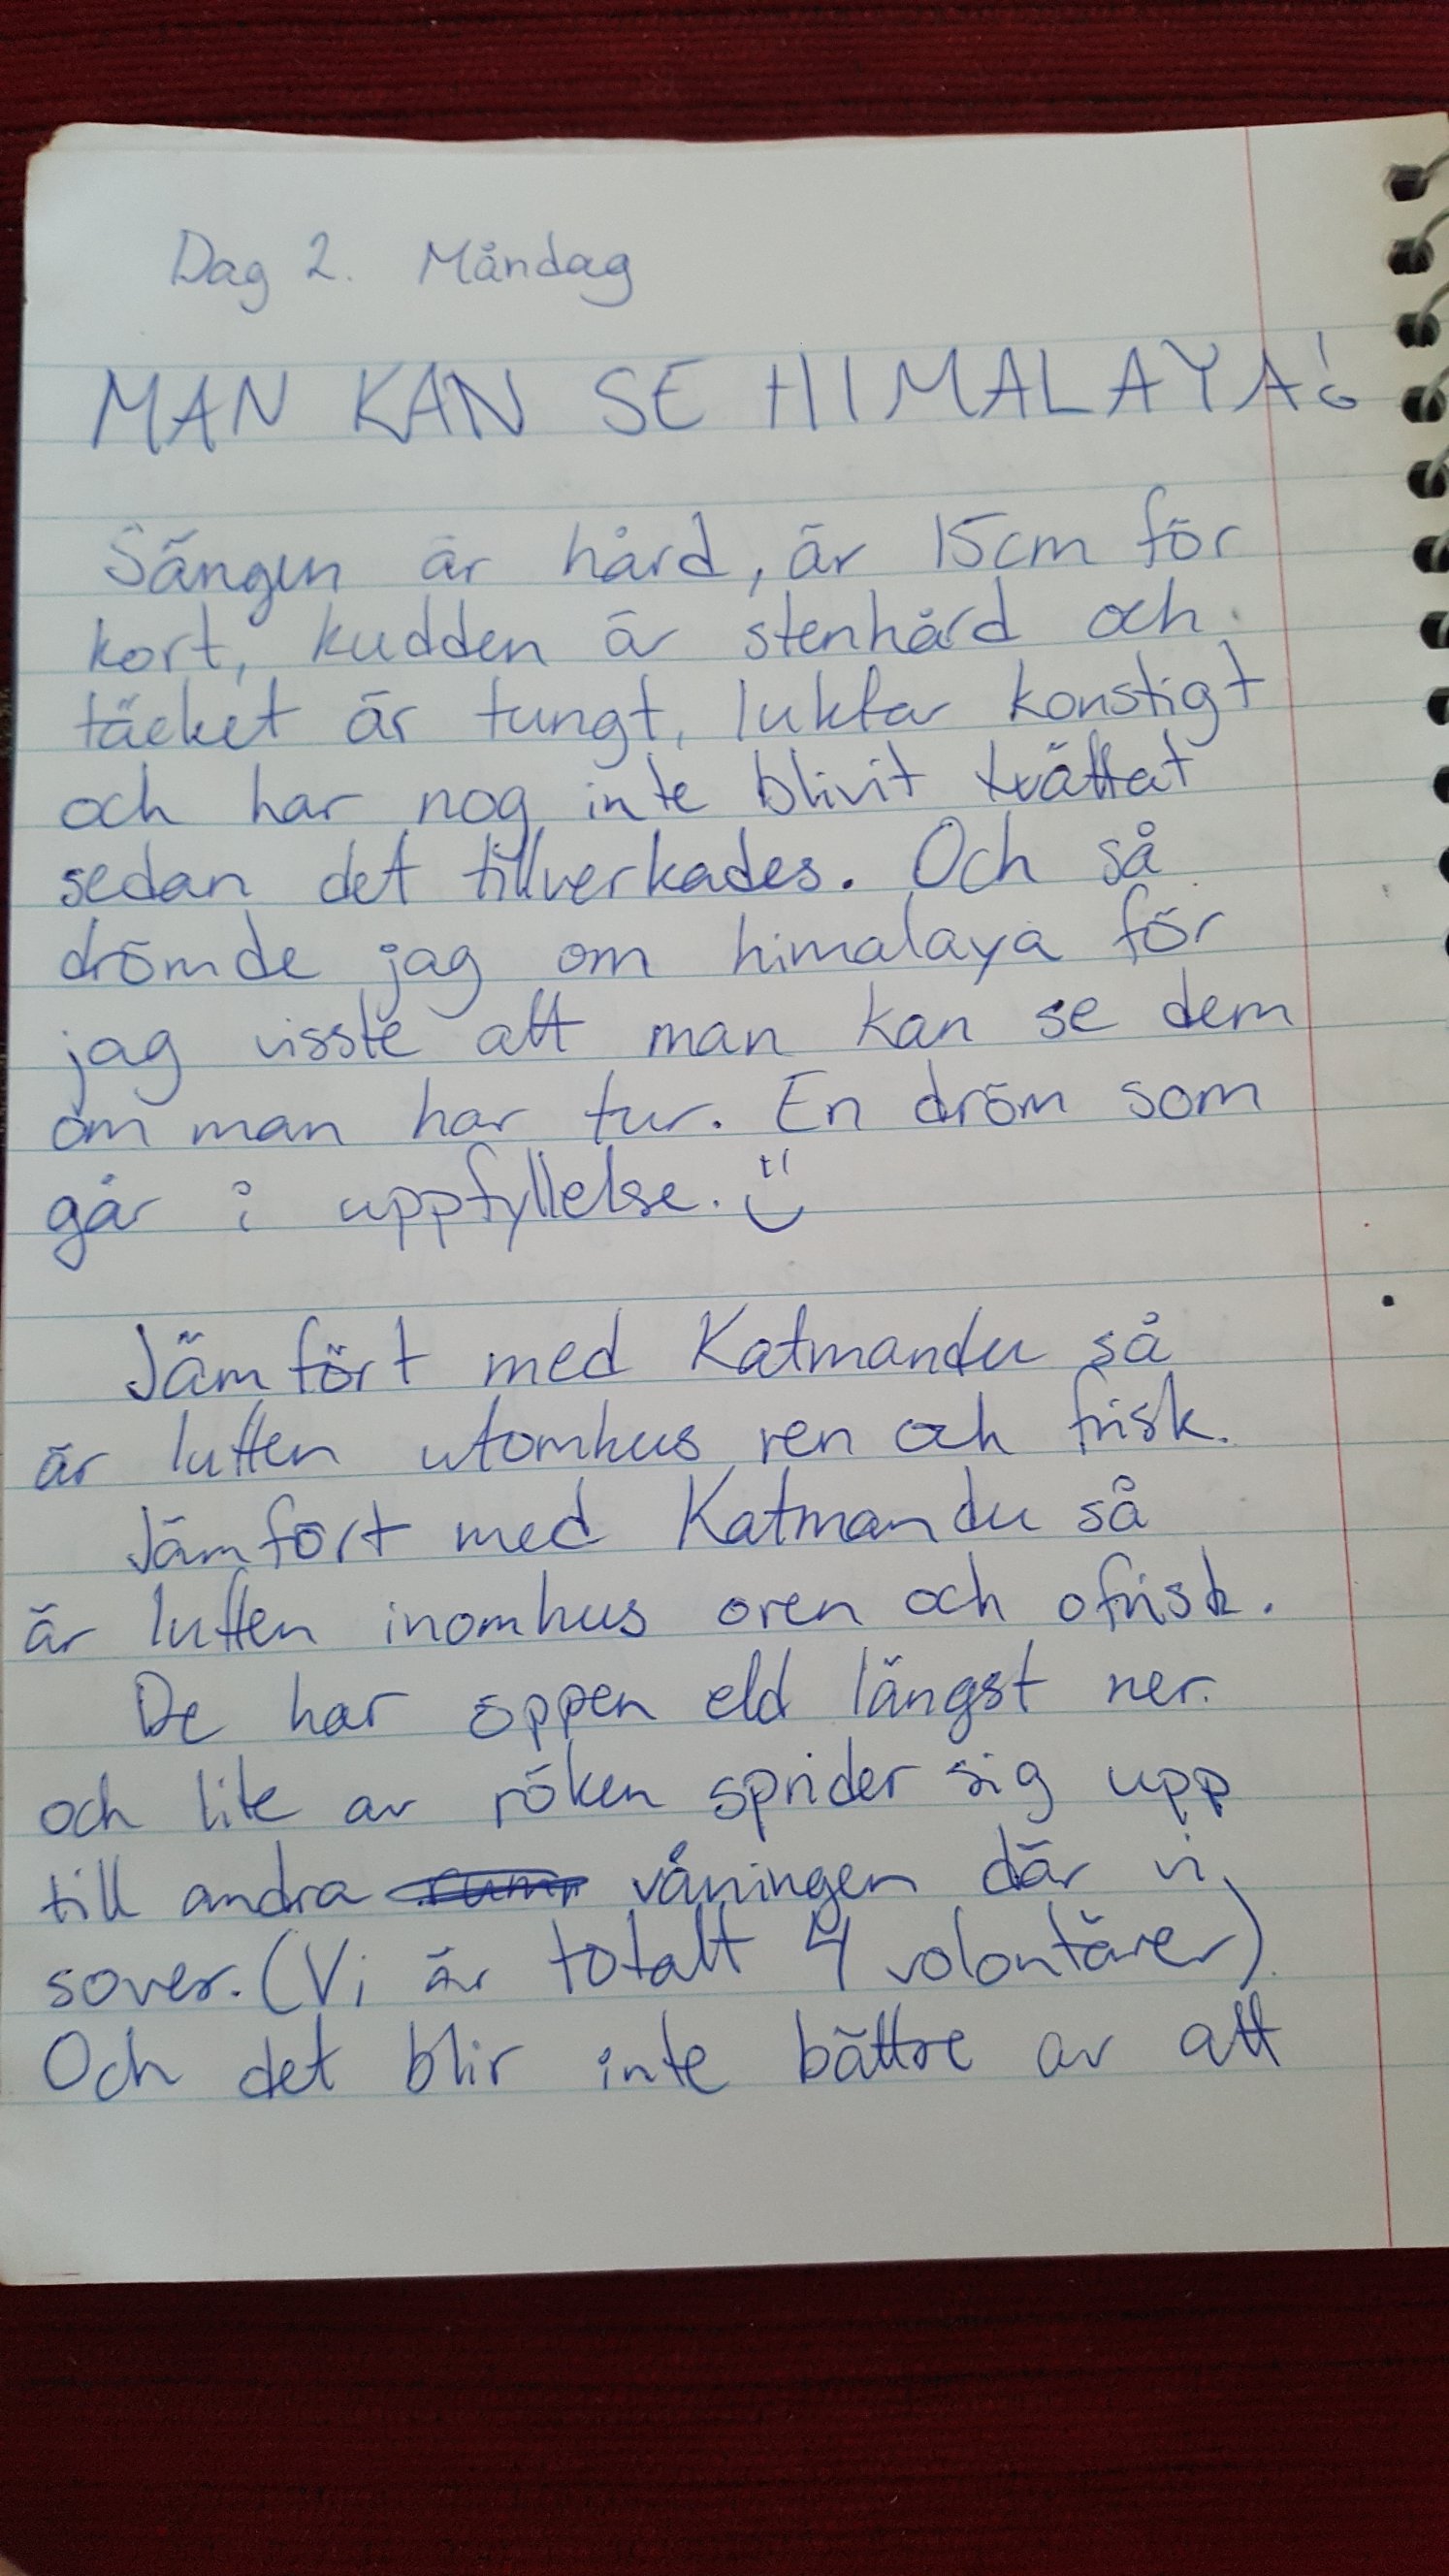 Dag 2. Måndag
MAN KAN SE HIMALAYA!
Sängen är hård, är 15cm för
kort, kudden är stenhård och
täcket är tungt, luktar konstigt
och har nog inte blivit tvättat
sedan det tillverkades. Och så
drömde jag om himalaya för
jag visste att man kan se dem
om man har tur. En dröm som
går i uppfyllelse. :)
Jämfört med Katmandu så
är luften utomhus ren och frisk.
Jämfört med Katmandu så
är luften inomhus oren och ofrisk.
De har öppen eld längst ner.
och lite av röken sprider sig upp
till andra våningen där vi
sover. (Vi är totalt 4 volontärer)
Och det blir inte bättre av att